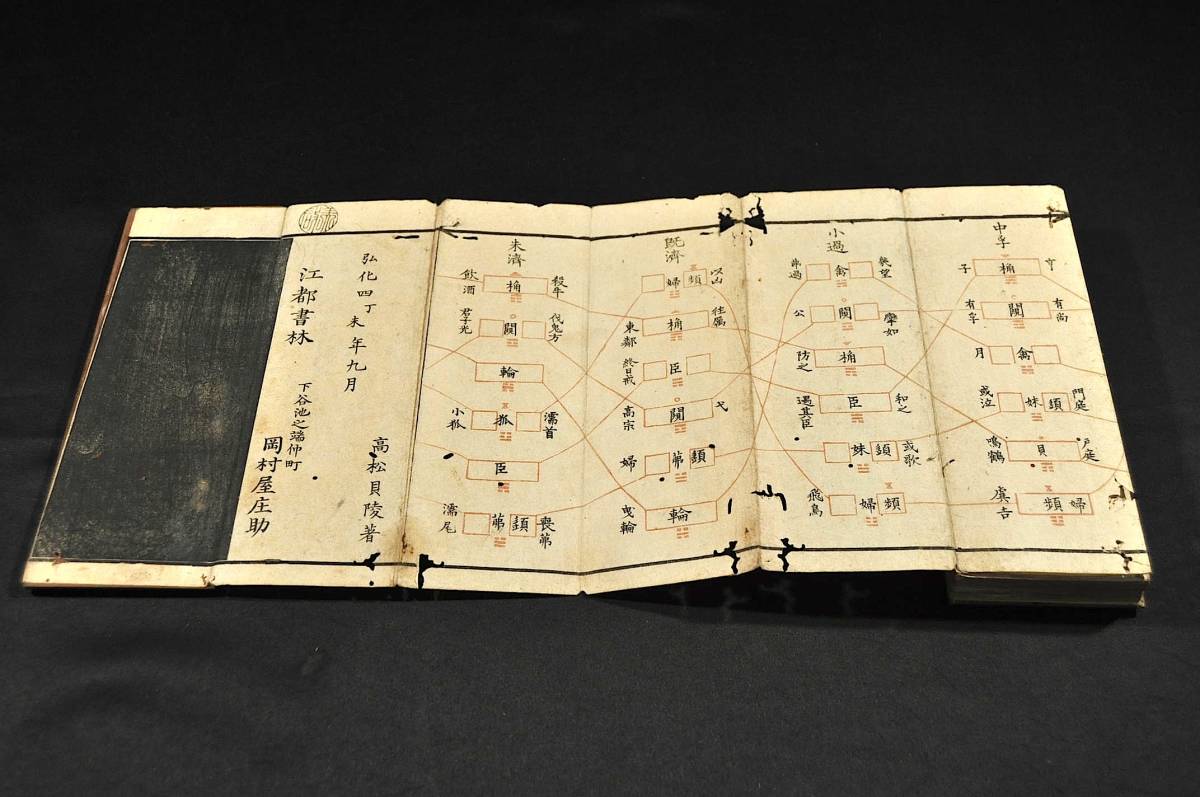 中孚
亨
桷
子
有尚
䦨
有孚
禽
月
門庭
頚
妹
或泣
戸庭
貝
鳴鶴
婦
頻
虞吉
小過
禽
弗過
挛如
䦨
公
桷
防之
和之
臣
遇其臣
或歌
頚
妹
頻
婦
飛鳥
既濟
頻
婦
往厲
桷
東鄰
臣
終日戒
弋
䦨
高宗
頚
茀
婦
輪
曳輪
未濟
殺牛
桷
飲酒
伐鬼方
䦨
君子光
輪
濡首
狐
小狐
臣
喪茀
頚
茀
濡尾
弘化四丁未年九月
高松貝陵著
江都書林
下谷池之端仲町
岡村屋庄助